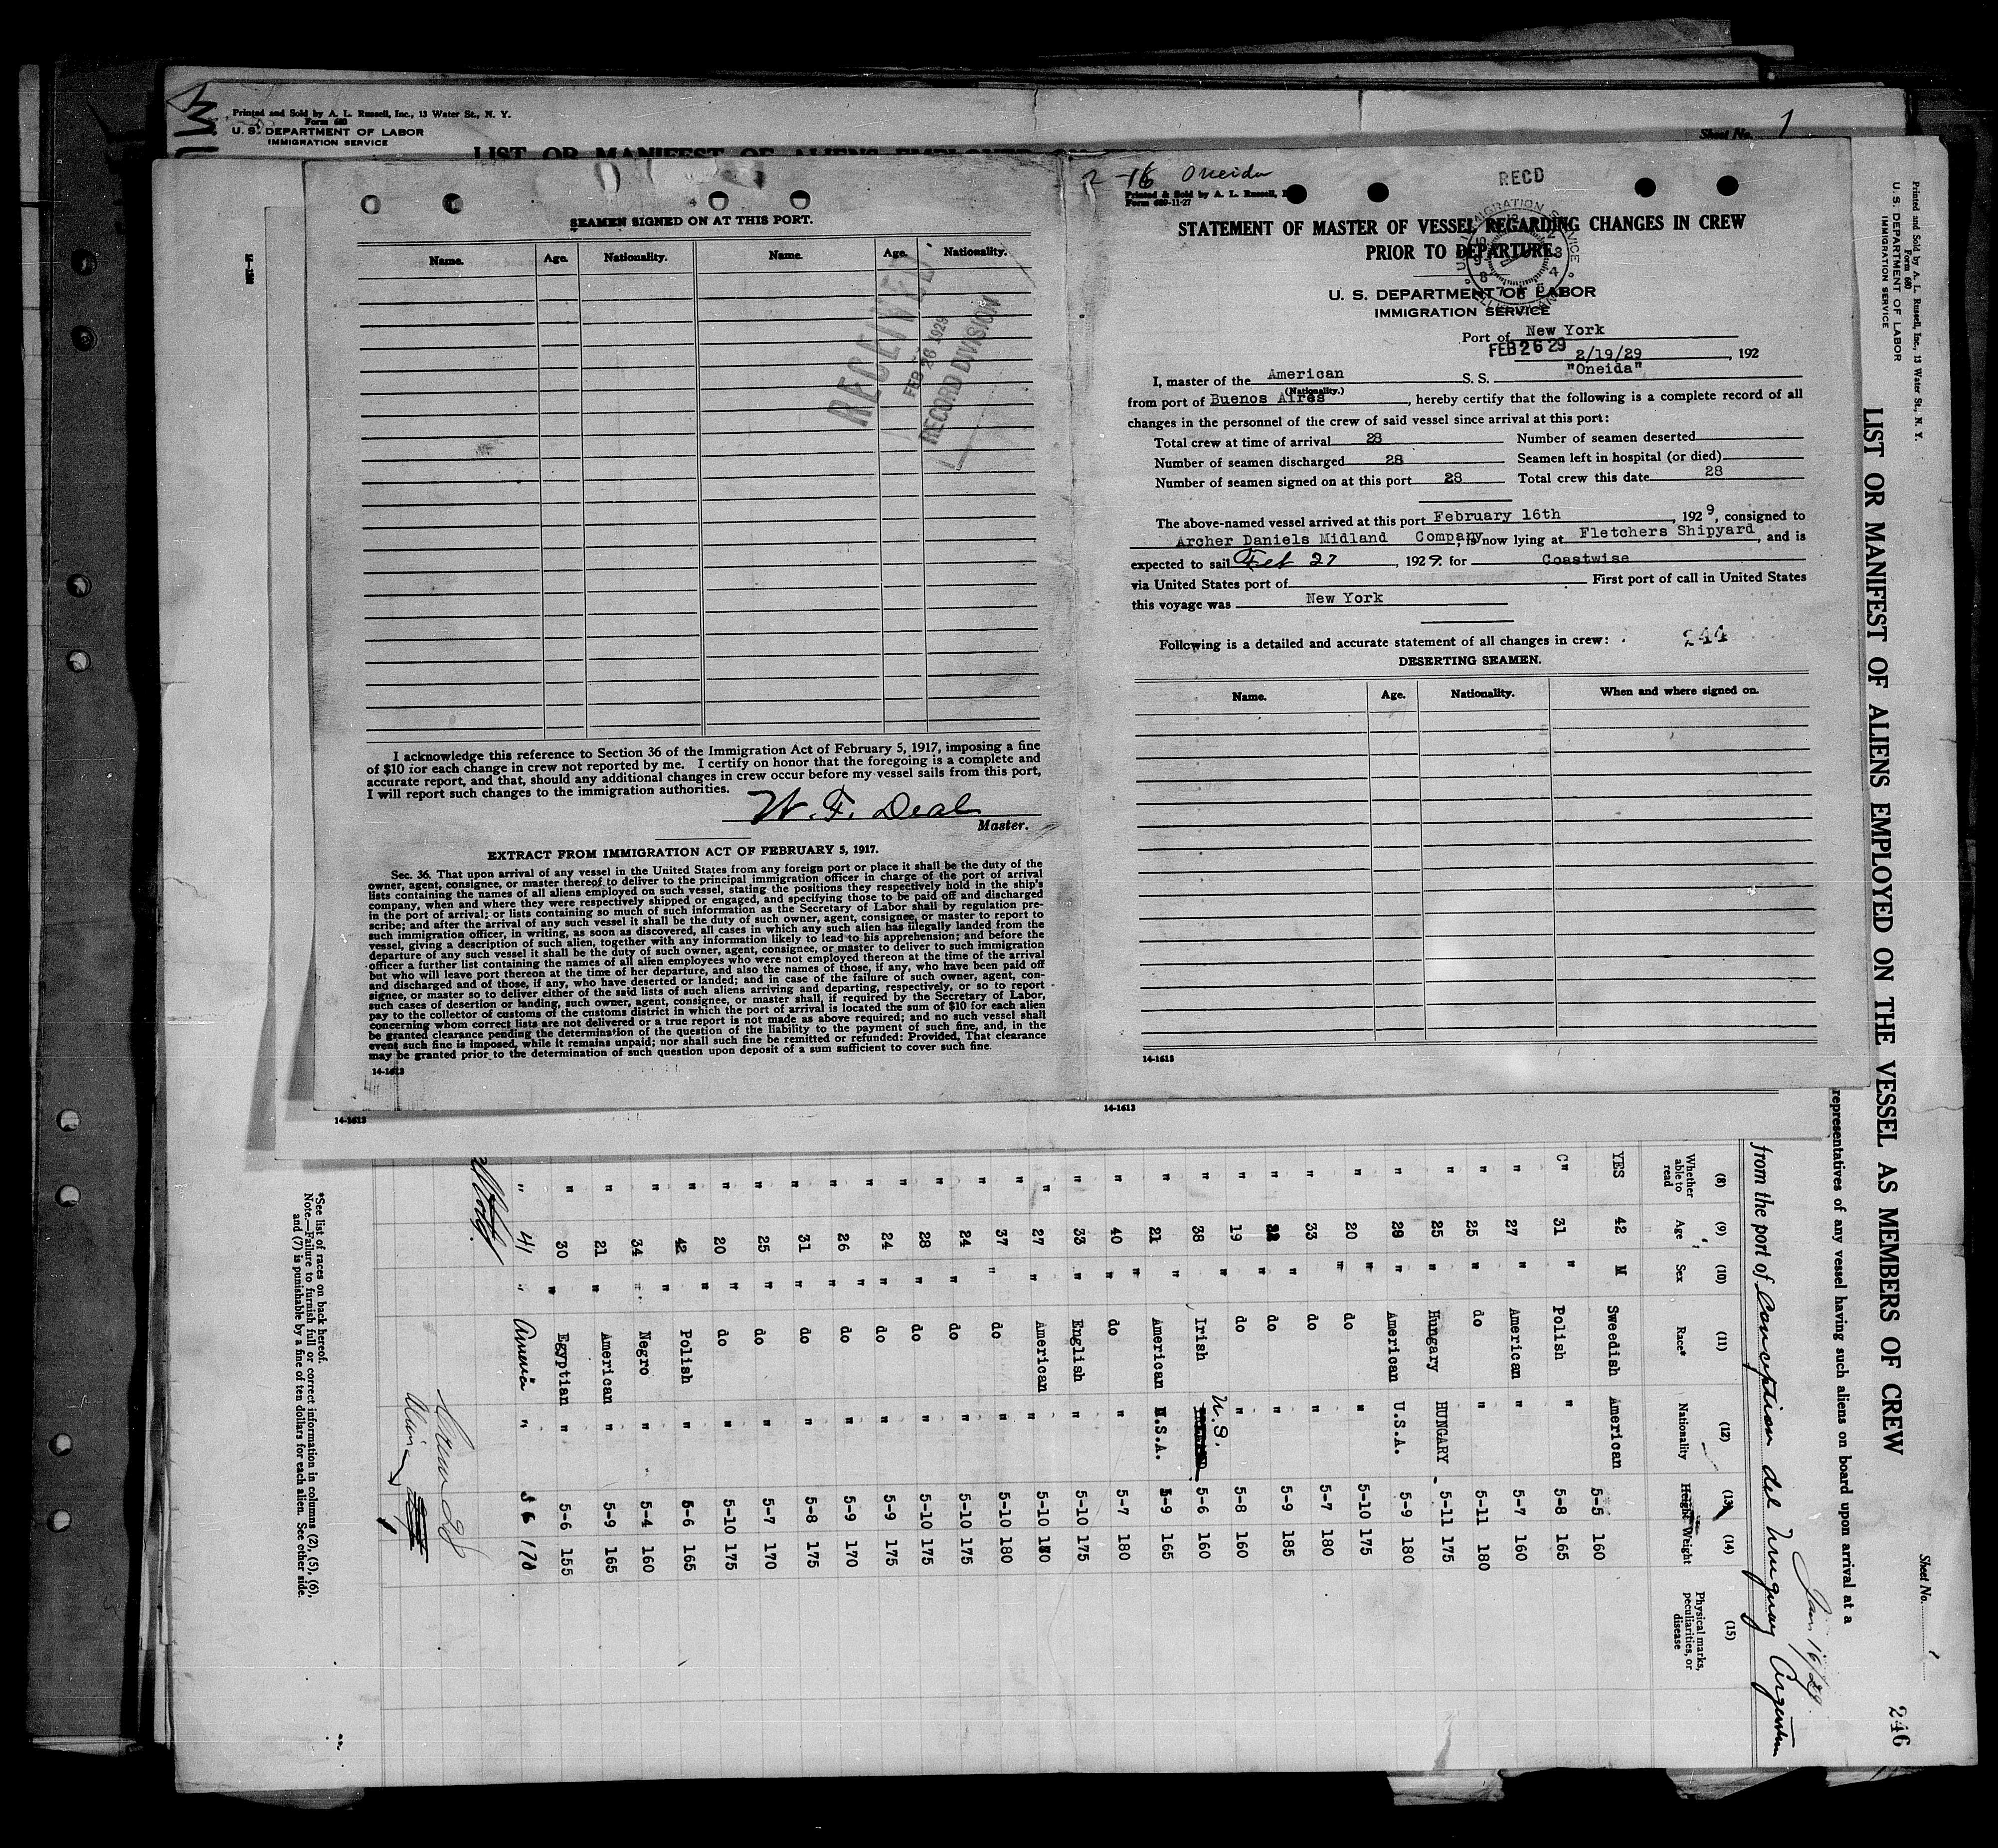 Printed and Sold by A. L. Russell, Inc., 13 Water St., N. Y.
Form 680
U. S. DEPARTMENT OF LABOR
IMMIGRATION SERVICE
Sheet No. 1
LIST OR MANIFEST OF ALIENS EMPLOYED ON
SEAMEN SIGNED ON AT THIS PORT.
Name. Age. Nationality. Name. Age. Nationality.
RECEIVED
FEB 26 1929
RECORD DIVISION
I acknowledge this reference to Section 36 of the Immigration Act of February 5, 1917, imposing a fine
of $10 for each change in crew not reported by me. I certify on honor that the foregoing is a complete and
accurate report, and that, should any additional changes in crew occur before my vessel sails from this port,
I will report such changes to the immigration authorities.
W. F. Deal
Master.
EXTRACT FROM IMMIGRATION ACT OF FEBRUARY 5, 1917.
Sec. 36. That upon arrival of any vessel in the United States from any foreign port or place it shall be the duty of the
owner, agent, consignee, or master thereof to deliver to the principal immigration officer in charge of the port of arrival
lists containing the names of all aliens employed on such vessel, stating the positions they respectively hold in the ship's
company, when and where they were respectively shipped or engaged, and specifying those to be paid off and discharged
in the port of arrival; or lists containing so much of such information as the Secretary of Labor shall by regulation pre-
scribe; and after the arrival of any such vessel it shall be the duty of such owner, agent, consignee, or master to report to
such immigration officer, in writing, as soon as discovered, all cases in which any such alien has illegally landed from the
vessel, giving a description of such alien, together with any information likely to lead to his apprehension; and before the
departure of any such vessel it shall be the duty of such owner, agent, consignee, or master to deliver to such immigration
officer a further list containing the names of all alien employees who were not employed thereon at the time of the arrival
but who will leave port thereon at the time of her departure, and also the names of those, if any, who have been paid off
and discharged and of those, if any, who have deserted or landed; and in case of the failure of such owner, agent, con-
signee, or master so to deliver either of the said lists of such aliens arriving and departing, respectively, or so to report
such cases of desertion or landing, such owner, agent, consignee, or master shall, if required by the Secretary of Labor,
pay to the collector of customs of the customs district in which the port of arrival is located the sum of $10 for each alien
concerning whom correct lists are not delivered or a true report is not made as above required; and no such vessel shall
be granted clearance pending the determination of the question of the liability to the payment of such fine, and, in the
event such fine is imposed, while it remains unpaid; nor shall such fine be remitted or refunded: Provided, That clearance
may be granted prior to the determination of such question upon deposit of a sum sufficient to cover such fine.
14-1613
14-1613
2-16 Oneida
Printed & Sold by A. L. Russell,
Form 689-11-27
RECD
STATEMENT OF MASTER OF VESSEL REGARDING CHANGES IN CREW
PRIOR TO DEPARTURE
U. S. DEPARTMENT OF LABOR
IMMIGRATION SERVICE
Port of New York
FEB 26 29
2/19/29, 192
I, master of the American S. S. "Oneida"
(Nationality.)
from port of Buenos Aires, hereby certify that the following is a complete record of all
changes in the personnel of the crew of said vessel since arrival at this port:
Total crew at time of arrival 28 Number of seamen deserted
Number of seamen discharged 28 Seamen left in hospital (or died)
Number of seamen signed on at this port 28 Total crew this date 28
The above-named vessel arrived at this port February 16th, 1929, consigned to
Archer Daniels Midland Company, is now lying at Fletchers Shipyard, and is
expected to sail Feb 27, 1929. for Coastwise
via United States port of First port of call in United States
this voyage was New York
Following is a detailed and accurate statement of all changes in crew: 244
DESERTING SEAMEN.
Name. Age. Nationality. When and where signed on.
14-1613
14-1613
Printed and Sold by A. L. Russell, Inc., 13 Water St., N. Y.
Form 680
U. S. DEPARTMENT OF LABOR
IMMIGRATION SERVICE
Sheet No. 1
246
LIST OR MANIFEST OF ALIENS EMPLOYED ON THE VESSEL AS MEMBERS OF CREW
representatives of any vessel having such aliens on board upon arrival at a
Jan 16/29
from the port of Conception del Uruguay Argentina
(8) (9) (10) (11) (12) (13) (14) (15)
Whether able to read Age Sex Race* Nationality Height Weight Physical marks, peculiarities, or disease
YES 42 M Swedish American 5-5 160
C" 31 " Polish " 5-8 165
" 27 " American " 5-7 160
" 25 " do " 5-11 180
" 25 " Hungary HUNGARY - 5-11 175
" 29 " American U.S.A. 5-9 180
" 20 " do " 5-10 175
" 33 " do " 5-7 180
" " do " 5-9 185
" 19 " do " 5-8 160
" 38 " Irish U.S. 5-6 160
" 21 " American U.S.A. 5-9 165
" 40 " do " 5-7 180
" 33 " English " 5-10 175
" 27 " American " 5-10 180
" 37 " do " 5-10 180
" 24 " do " 5-10 175
" 28 " do " 5-10 175
" 24 " do " 5-9 175
" 26 " do " 5-9 170
" 31 " do " 5-8 175
" 25 " do " 5-7 170
" 20 " do " 5-10 175
" 42 " Polish " 5-6 165
" 34 " Negro " 5-4 160
" 21 " American " 5-9 165
" 30 " Egyptian " 5-6 155
" 41 " " 5 6 170
Crew 28
*See list of races on back hereof.
Note.—Failure to furnish full or correct information in columns (2), (5), (6),
and (7) is punishable by a fine of ten dollars for each alien. See other side.